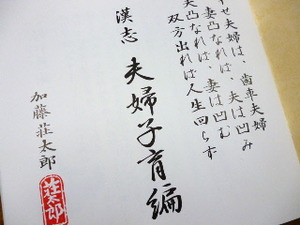 せ夫婦は、歯車夫婦
妻凸なれば、夫は凹み
夫凸なれば、妻は凹む
双方出れば人生回らず
漢志 夫婦子育編
加藤荘太郎
荘太郎